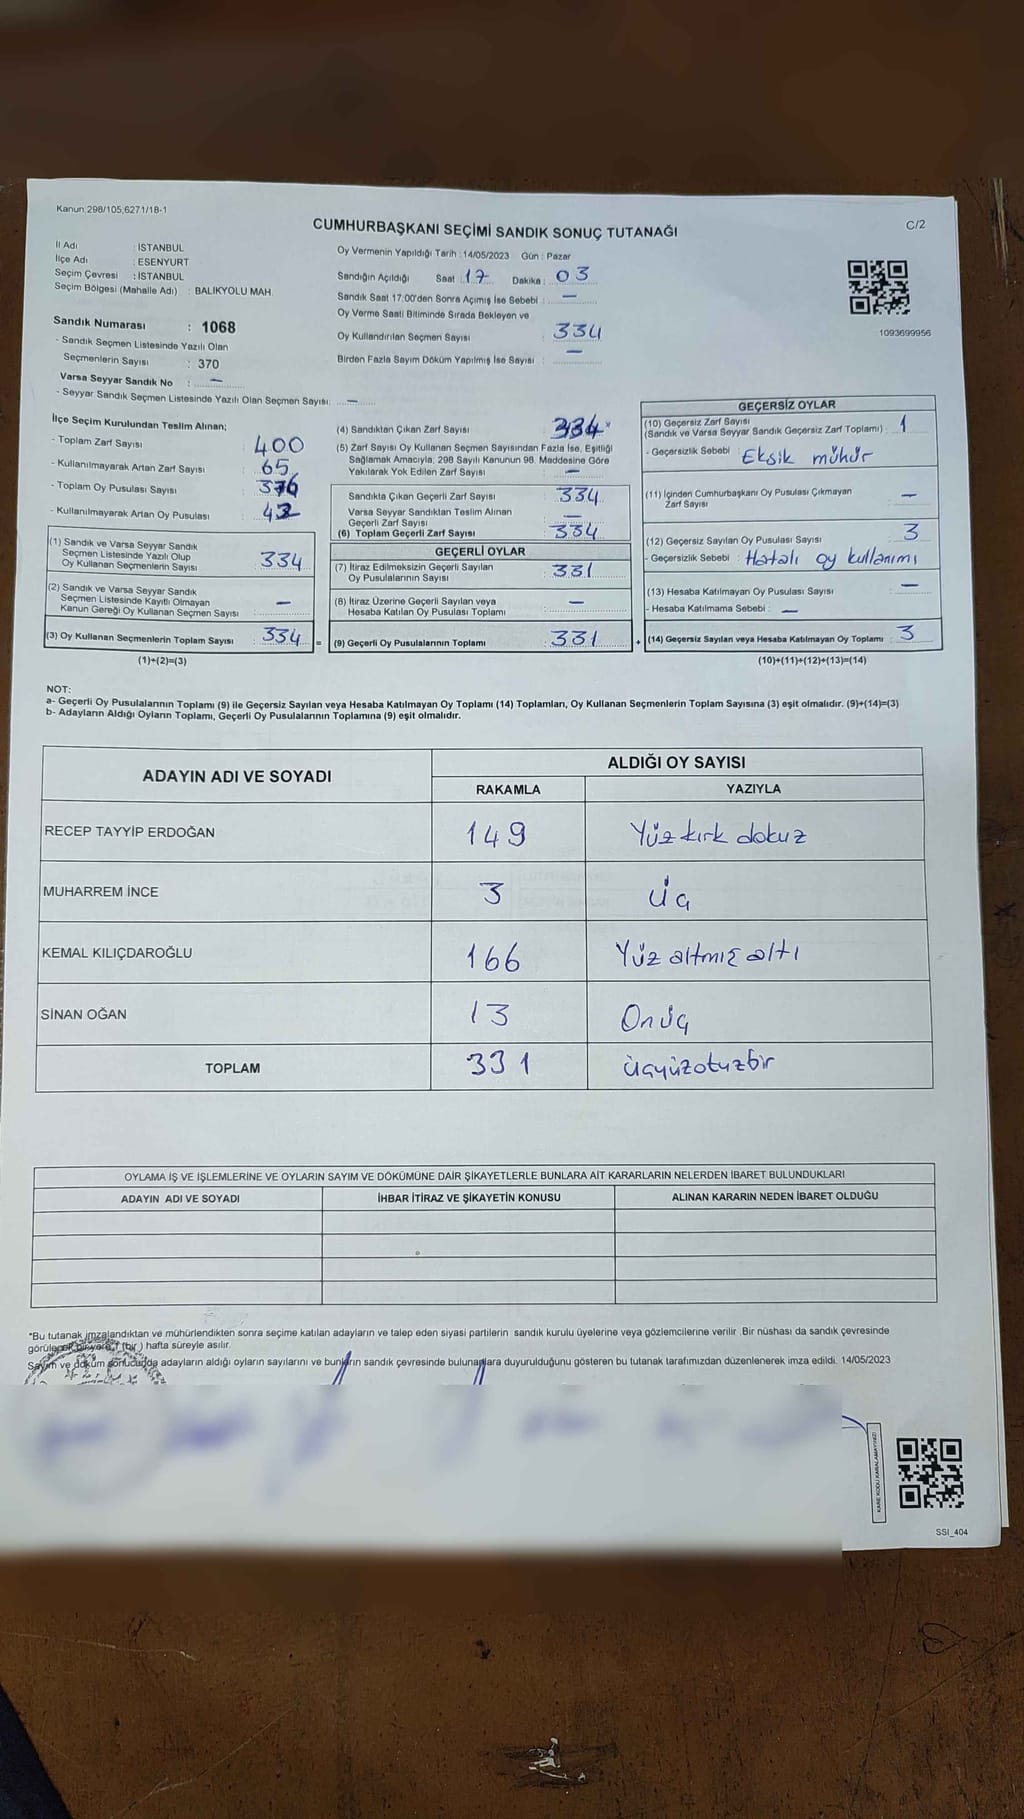 Kanun;298/105;6271/18-1
C/2
CUMHURBAŞKANI SEÇİMİ SANDIK SONUÇ TUTANAĞI
İl Adı : İSTANBUL
İlçe Adı : ESENYURT
Seçim Çevresi : İSTANBUL
Seçim Bölgesi (Mahalle Adı) : BALIKYOLU MAH.
Oy Vermenin Yapıldığı Tarih :14/05/2023 Gün : Pazar
Sandığın Açıldığı Saat 17 Dakika : 03
Sandık Saat 17:00'den Sonra Açımış İse Sebebi : —
Oy Verme Saati Bitiminde Sırada Bekleyen ve
Oy Kullandırılan Seçmen Sayısı 334
Birden Fazla Sayım Döküm Yapılmış İse Sayısı : —
1093699956
Sandık Numarası : 1068
- Sandık Seçmen Listesinde Yazılı Olan
Seçmenlerin Sayısı : 370
Varsa Seyyar Sandık No : —
- Seyyar Sandık Seçmen Listesinde Yazılı Olan Seçmen Sayısı: —
İlçe Seçim Kurulundan Teslim Alınan;
- Toplam Zarf Sayısı 400
- Kullanılmayarak Artan Zarf Sayısı : 65
- Toplam Oy Pusulası Sayısı : 376
- Kullanılmayarak Artan Oy Pusulası :
(1) Sandık ve Varsa Seyyar Sandık
Seçmen Listesinde Yazılı Olup
Oy Kullanan Seçmenlerin Sayısı : 334
(2) Sandık ve Varsa Seyyar Sandık
Seçmen Listesinde Kayıtlı Olmayan
Kanun Gereği Oy Kullanan Seçmen Sayısı : —
(3) Oy Kullanan Seçmenlerin Toplam Sayısı : 334
(1)+(2)=(3)
(4) Sandıktan Çıkan Zarf Sayısı : 334
(5) Zarf Sayısı Oy Kullanan Seçmen Sayısından Fazla İse, Eşitliği
Sağlamak Amacıyla; 298 Sayılı Kanunun 98. Maddesine Göre
Yakılarak Yok Edilen Zarf Sayısı : —
Sandıkta Çıkan Geçerli Zarf Sayısı : 334
Varsa Seyyar Sandıktan Teslim Alınan
Geçerli Zarf Sayısı : —
(6) Toplam Geçerli Zarf Sayısı : 334
GEÇERLİ OYLAR
(7) İtiraz Edilmeksizin Geçerli Sayılan
Oy Pusulalarının Sayısı : 331
(8) İtiraz Üzerine Geçerli Sayılan veya
Hesaba Katılan Oy Pusulası Toplamı : —
= (9) Geçerli Oy Pusulalarının Toplamı : 331
GEÇERSİZ OYLAR
(10) Geçersiz Zarf Sayısı
(Sandık ve Varsa Seyyar Sandık Geçersiz Zarf Toplamı) : 1
- Geçersizlik Sebebi : Eksik mühür
(11) İçinden Cumhurbaşkanı Oy Pusulası Çıkmayan
Zarf Sayısı : —
(12) Geçersiz Sayılan Oy Pusulası Sayısı : 3
- Geçersizlik Sebebi : Hatalı oy kullanımı
(13) Hesaba Katılmayan Oy Pusulası Sayısı : —
- Hesaba Katılmama Sebebi : —
+ (14) Geçersiz Sayılan veya Hesaba Katılmayan Oy Toplamı : 3
(10)+(11)+(12)+(13)=(14)
NOT:
a- Geçerli Oy Pusulalarının Toplamı (9) ile Geçersiz Sayılan veya Hesaba Katılmayan Oy Toplamı (14) Toplamları, Oy Kullanan Seçmenlerin Toplam Sayısına (3) eşit olmalıdır. (9)+(14)=(3)
b- Adayların Aldığı Oyların Toplamı, Geçerli Oy Pusulalarının Toplamına (9) eşit olmalıdır.
ADAYIN ADI VE SOYADI
ALDIĞI OY SAYISI
RAKAMLA YAZIYLA
RECEP TAYYİP ERDOĞAN 149 Yüz kırk dokuz
MUHARREM İNCE 3 Üç
KEMAL KILIÇDAROĞLU 166 Yüz altmış altı
SİNAN OĞAN 13 Onüç
TOPLAM 331 üçyüzotuzbir
OYLAMA İŞ VE İŞLEMLERİNE VE OYLARIN SAYIM VE DÖKÜMÜNE DAİR ŞİKAYETLERLE BUNLARA AİT KARARLARIN NELERDEN İBARET BULUNDUKLARI
ADAYIN ADI VE SOYADI İHBAR İTİRAZ VE ŞİKAYETİN KONUSU ALINAN KARARIN NEDEN İBARET OLDUĞU
*Bu tutanak imzalandıktan ve mühürlendikten sonra seçime katılan adayların ve talep eden siyasi partilerin sandık kurulu üyelerine veya gözlemcilerine verilir. Bir nüshası da sandık çevresinde
görülecek bir yere 1 (bir ) hafta süreyle asılır.
Sayım ve döküm sonucunda adayların aldığı oyların sayılarını ve bunların sandık çevresinde bulunanlara duyurulduğunu gösteren bu tutanak tarafımızdan düzenlenerek imza edildi. 14/05/2023
KARE KODU KARALAMAYINIZ!
SSI_404